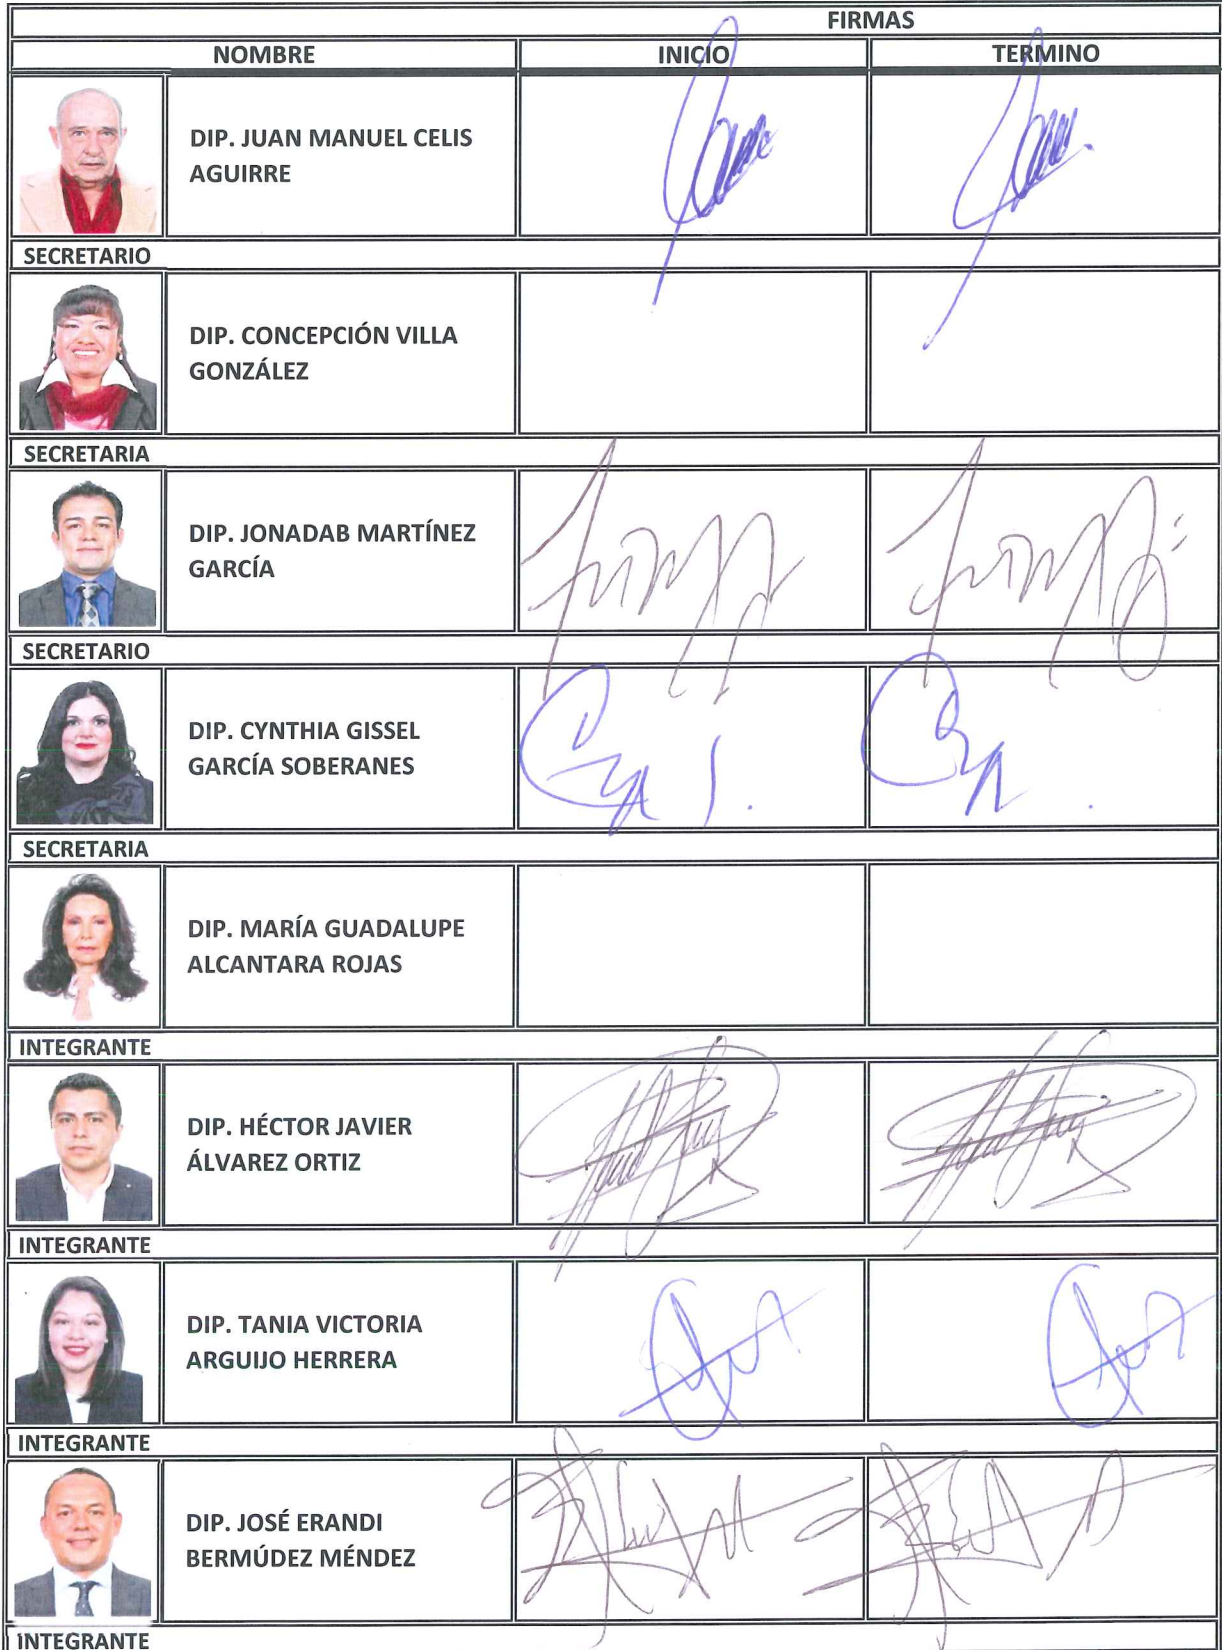 FIRMAS
NOMBRE INICIO TERMINO
DIP. JUAN MANUEL CELIS
AGUIRRE
SECRETARIO
DIP. CONCEPCIÓN VILLA
GONZÁLEZ
SECRETARIA
DIP. JONADAB MARTÍNEZ
GARCÍA
SECRETARIO
DIP. CYNTHIA GISSEL
GARCÍA SOBERANES
SECRETARIA
DIP. MARÍA GUADALUPE
ALCANTARA ROJAS
INTEGRANTE
DIP. HÉCTOR JAVIER
ÁLVAREZ ORTIZ
INTEGRANTE
DIP. TANIA VICTORIA
ARGUIJO HERRERA
INTEGRANTE
DIP. JOSÉ ERANDI
BERMÚDEZ MÉNDEZ
INTEGRANTE